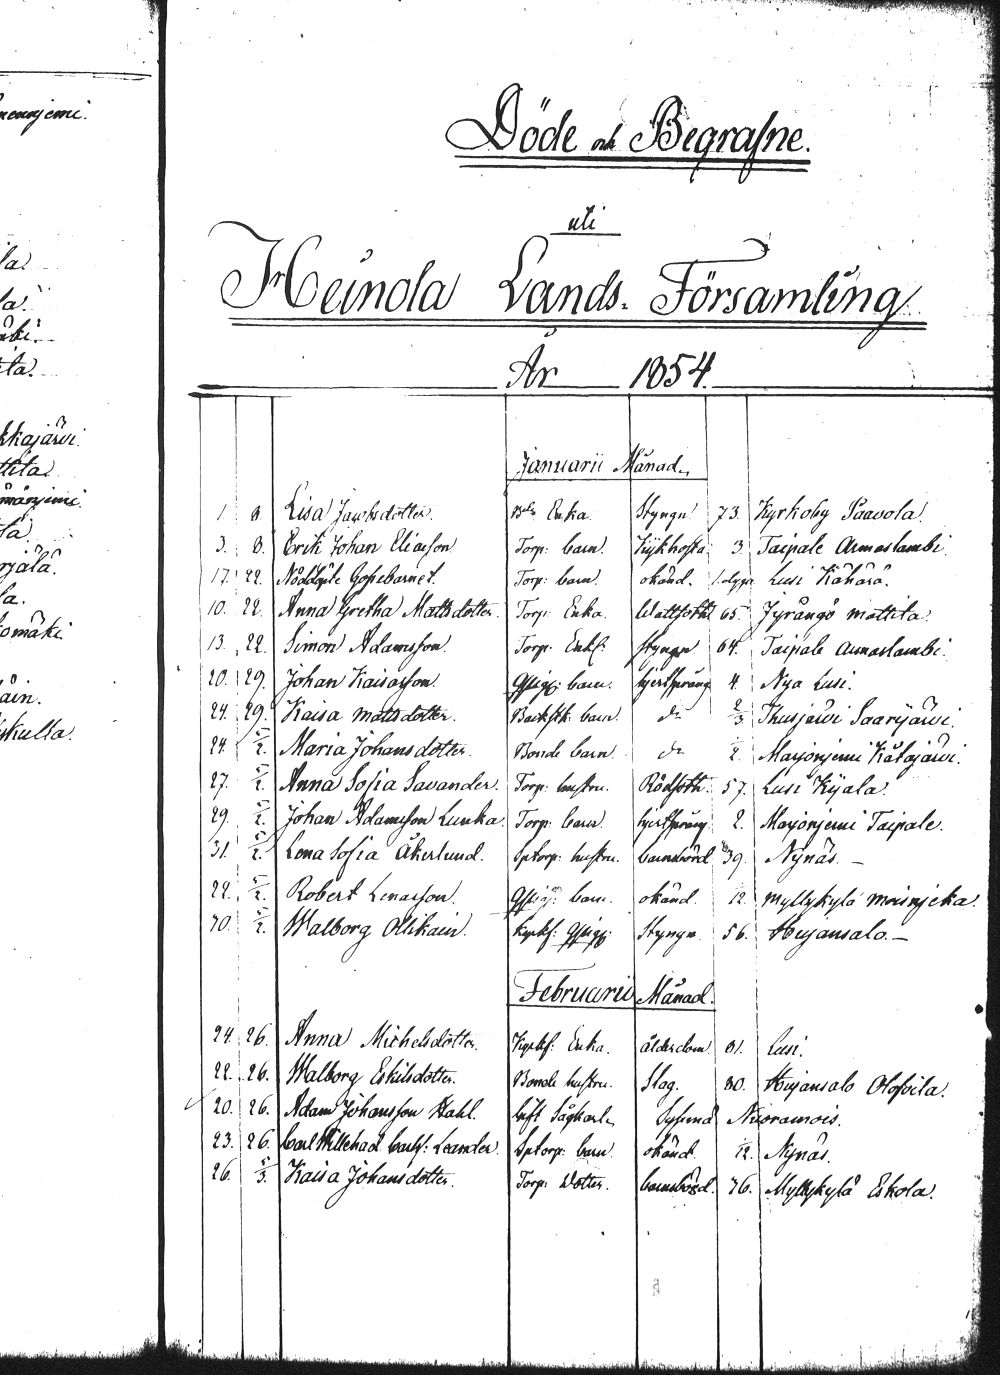 nennjemi.
la
la.
äki.
ila.
kkajärvi.
ttila.
lä
rjälä.
la.
omäki
äin.
skulla.
Döde och Begrafne.
uti
Heinola Lands-Församling
År 1854.
Januarii Månad.
1. 8. Lisa Jacobsdotter. Enka. Styngn 73. Kyrkoby Paavola.
3. 8. Erik Johan Eliasson Torp: barn. Kikhosta 3. Taipale Armaslambi.
17. 22. Nöddöpte Gossebarnet. Torp: barn. okänd. 1. Lusi Kähärä.
10. 22. Anna Gretha Mattsdotter. Torp: Enka. Wattsot 65. Jyrängö Mattila.
13. 22. Simon Adamsson. Torp: Enkl: Styngn 64. Taipale Armaslambi.
20. 29. Johan Kaisasson. barn. hjertsprång 4. Nya Lusi.
24. 29. Kaisa Mattsdotter. barn. do 2/3 Ihusjärvi Saarijärvi.
24. 5/2. Maria Johansdotter. Bonde barn do 1/2. Marjonjemi Kälajärvi.
27. 5/2. Anna Sofia Savander. Torp: hustru. Rödsot. 57. Lusi Kijala.
29. 5/2. Johan Adamsson Lunka. Torp: barn. hjertsprång 2. Marjonjemi Taipale.
31. 5/2. Lena Sofia Åkerlund. Sptorp: hustru. barnsbörd 39. Nynäs. —
22. 5/2. Robert Lenasson. barn. okänd. 12. Myllykylä
30. 5/2. Walborg Ollikain. Styngn. 56. Heijansalo. —
Februarii Månad.
24. 26. Anna Michelsdotter. Enka. ålderdom. 81. Lusi.
22. 26. Walborg Eskilsdotter. Bonde hustru. Slag. 80. Heijansalo Olofsila.
20. 26. Adam Johansson Stahl. Sågkarl. Nuoramois.
23. 26. Carl Willehad Carls: Leander. Sptorp: barn okänd. 1/12. Nynäs.
26. 5/3. Kaisa Johansdotter. Torp: Dotter. barnsbörd. 36. Myllykylä Eskola.